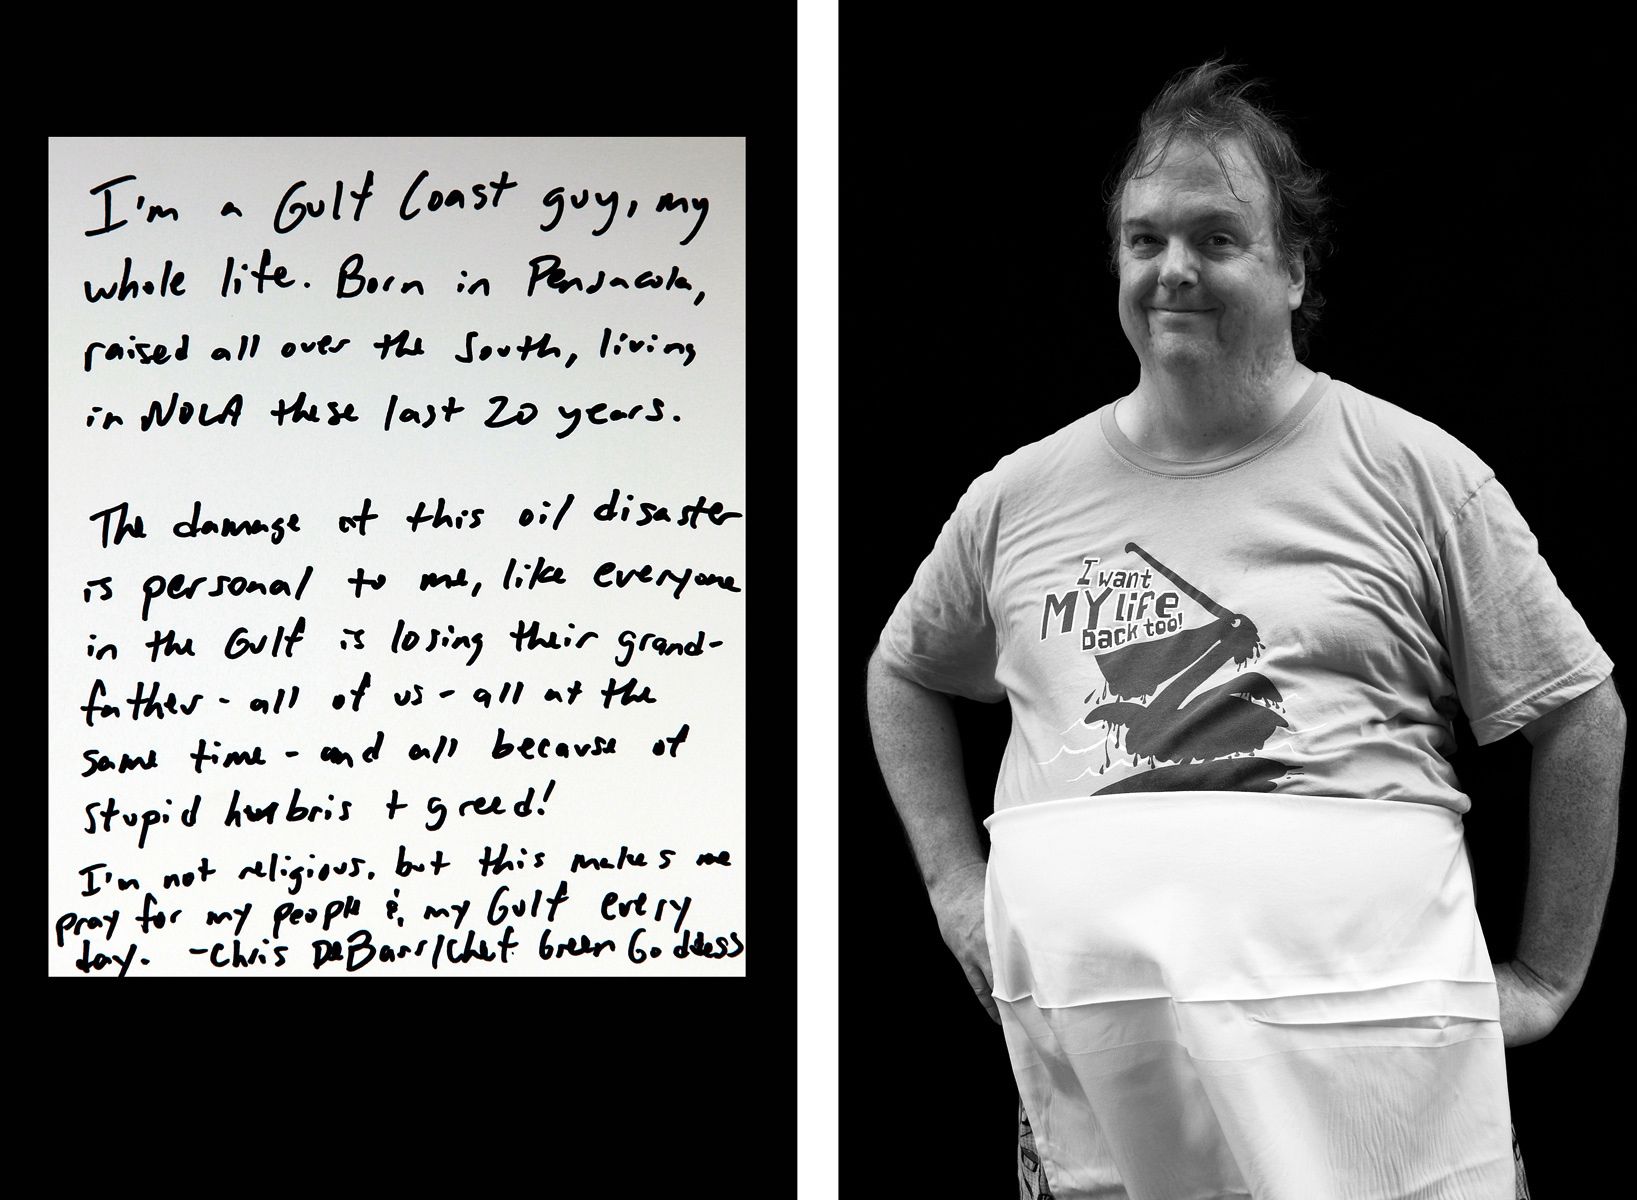 I'm a Gulf Coast guy, my
whole life. Born in Pensacola,
raised all over the South, living
in NOLA these last 20 years.
The damage of this oil disaster
is personal to me, like everyone
in the Gulf is losing their grand-
father - all of us - all at the
same time - and all because of
stupid hubris + greed!
I'm not religious, but this makes me
pray for my people & my Gulf every
day. - Chris DeBarr/Chef. Green Goddess
I want
MY life
back too!